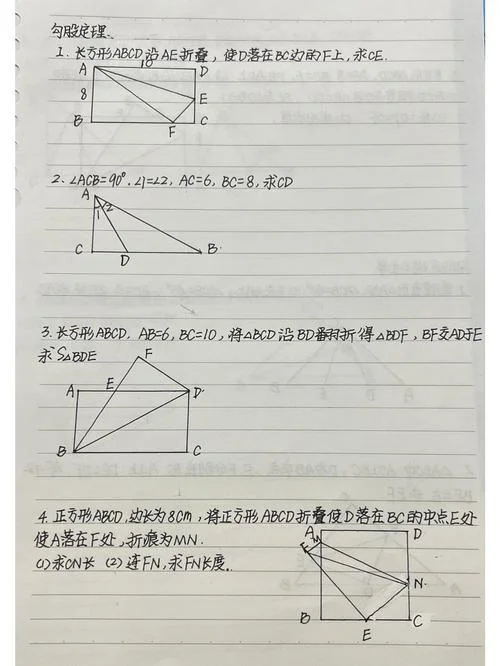 勾股定理.
1. 长方形ABCD沿AE折叠, 使D落在BC边的F上, 求CE.
A 10 D
8
E
B F C
2. ∠ACB=90°. ∠1=∠2, AC=6, BC=8, 求CD
A
1 2
C D B
3. 长方形ABCD. AB=6, BC=10, 将△BCD沿BD翻折得△BDF, BF交AD于E
求S△BDE
F
A E D
B C
4. 正方形ABCD, 边长为8cm, 将正方形ABCD折叠使D落在BC的中点E处
使A落在F处, 折痕为MN.
(1) 求CN长 (2) 连FN, 求FN长度.
A D
F M
N
B E C